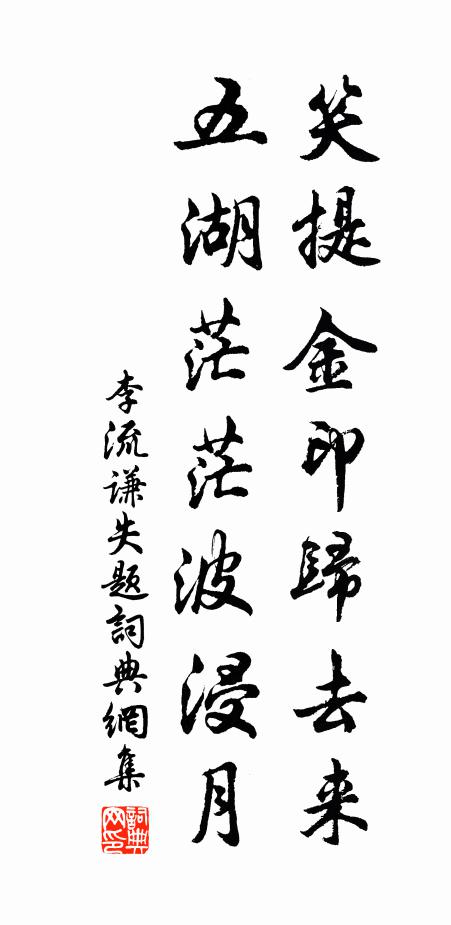 笑提金印歸去来
五湖茫茫波浸月
李流谦失题詞典網集
詞典網印